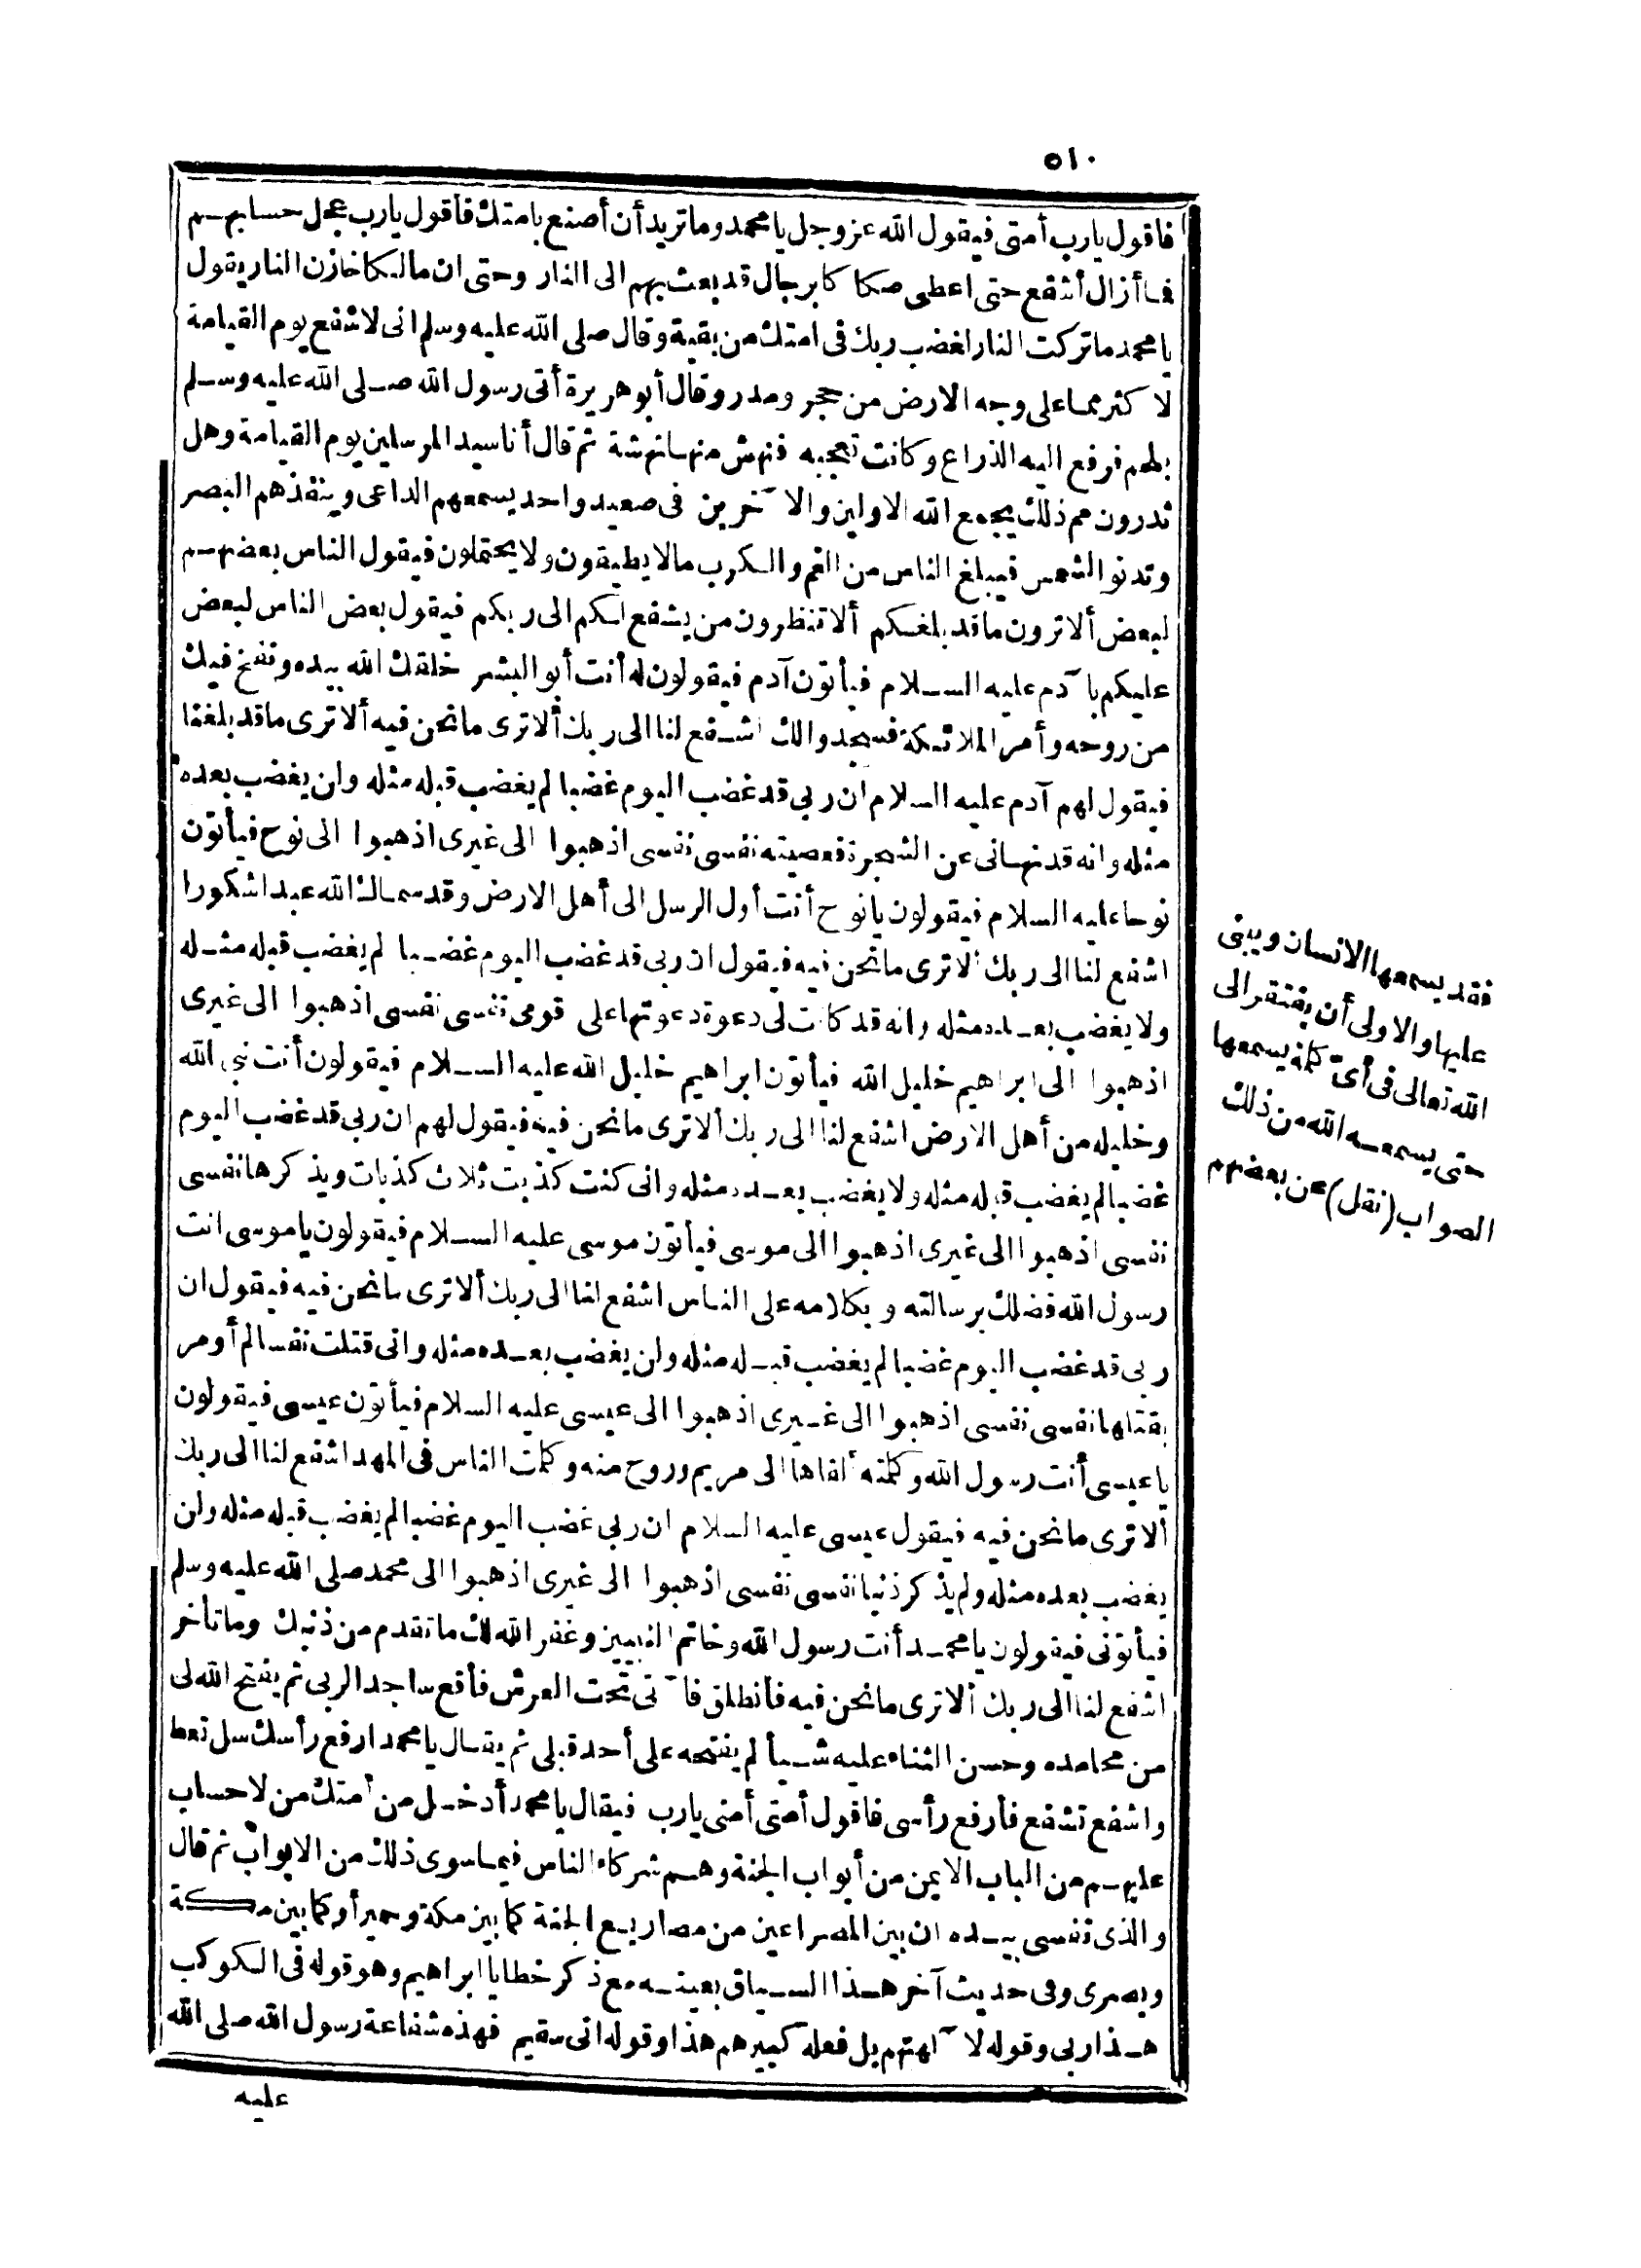 ٥١٠
فاقول يارب أمتى فيقول الله عزوجل يا محمد وما تريد أن أصنع بامتك فأقول يارب عجل حسابهم
فما أزال أشفع حتى اعطى صكاكا برجال قد بعث بهم الى النار وحتى ان مالكا خازن النار يقول
يا محمد ما تركت النار لغضب ربك فى امتك من بقية وقال صلى الله عليه وسلم انى لاشفع يوم القيامة
لا كثر مما على وجه الارض من حجر ومدر وقال أبو هريرة أتى رسول الله صلى الله عليه وسلم
بلحم فرفع اليه الذراع وكانت تعجبه فنهش منها نهشة ثم قال أنا سيد المرسلين يوم القيامة وهل
تدرون مم ذلك يجمع الله الاولين والآخرين فى صعيد واحد يسمعهم الداعى وينفذهم البصر
وتدنو الشمس فيبلغ الناس من الغم والكرب مالا يطيقون ولا يحتملون فيقول الناس بعضهم
لبعض ألا ترون ما قد بلغكم ألا تنظرون من يشفع لكم الى ربكم فيقول بعض الناس لبعض
عليكم بآدم عليه السلام فيأتون آدم فيقولون له أنت أبو البشر خلقك الله بيده ونفخ فيك
من روحه وأمر الملائكة فسجدوا لك اشفع لنا الى ربك ألا ترى ما نحن فيه ألا ترى ما قد بلغنا
فيقول لهم آدم عليه السلام ان ربى قد غضب اليوم غضبا لم يغضب قبله مثله وان يغضب بعده
مثله وانه قد نهانى عن الشجرة فعصيته نفسى نفسى اذهبوا الى غيرى اذهبوا الى نوح فيأتون
نوحا عليه السلام فيقولون يا نوح أنت أول الرسل الى أهل الارض وقد سماك الله عبدا شكورا
اشفع لنا الى ربك ألا ترى ما نحن فيه فيقول ان ربى قد غضب اليوم غضبا لم يغضب قبله مثله
ولا يغضب بعده مثله وانه قد كانت لى دعوة دعوتها على قومى نفسى نفسى اذهبوا الى غيرى
اذهبوا الى ابراهيم خليل الله فيأتون ابراهيم خليل الله عليه السلام فيقولون أنت نبى الله
وخليله من أهل الارض اشفع لنا الى ربك ألا ترى ما نحن فيه فيقول لهم ان ربى قد غضب اليوم
غضبا لم يغضب قبله مثله ولا يغضب بعده مثله وانى كنت كذبت ثلاث كذبات ويذكرها نفسى
نفسى اذهبوا الى غيرى اذهبوا الى موسى فيأتون موسى عليه السلام فيقولون يا موسى انت
رسول الله فضلك برسالته وبكلامه على الناس اشفع لنا الى ربك ألا ترى ما نحن فيه فيقول ان
ربى قد غضب اليوم غضبا لم يغضب قبله مثله ولن يغضب بعده مثله وانى قتلت نفسا لم أومر
بقتلها نفسى نفسى اذهبوا الى غيرى اذهبوا الى عيسى عليه السلام فيأتون عيسى فيقولون
يا عيسى أنت رسول الله وكلمته ألقاها الى مريم وروح منه وكلمت الناس فى المهد اشفع لنا الى ربك
ألا ترى ما نحن فيه فيقول عيسى عليه السلام ان ربى غضب اليوم غضبا لم يغضب قبله مثله ولن
يغضب بعده مثله ولم يذكر ذنبا نفسى نفسى اذهبوا الى غيرى اذهبوا الى محمد صلى الله عليه وسلم
فيأتونى فيقولون يا محمد أنت رسول الله وخاتم النبيين وغفر الله لك ما تقدم من ذنبك وما تأخر
اشفع لنا الى ربك ألا ترى ما نحن فيه فأنطلق فآتى تحت العرش فأقع ساجدا لربى ثم يفتح الله لى
من محامده وحسن الثناء عليه شيأ لم يفتحه على أحد قبلى ثم يقال يا محمد ارفع رأسك سل تعط
واشفع تشفع فأرفع رأسى فاقول أمتى أمتى يارب فيقال يا محمد أدخل من أمتك من لا حساب
عليهم من الباب الايمن من أبواب الجنة وهم شركاء الناس فيما سوى ذلك من الابواب ثم قال
والذى نفسى بيده ان بين المصراعين من مصاريع الجنة كما بين مكة وحمير أو كما بين مكة
وبصرى وفى حديث آخر هذا السياق بعينه مع ذكر خطايا ابراهيم وهو قوله فى الكوكب
هذا ربى وقوله لآلهتهم بل فعله كبيرهم هذا وقوله انى سقيم فهذه شفاعة رسول الله صلى الله
عليه
فقد يسمعها الانسان ويبنى
عليها والاولى أن يفتقر الى
الله تعالى فى أى كلمة يسمعها
حتى يسمعه الله من ذلك
الصواب (نقل) عن بعضهم